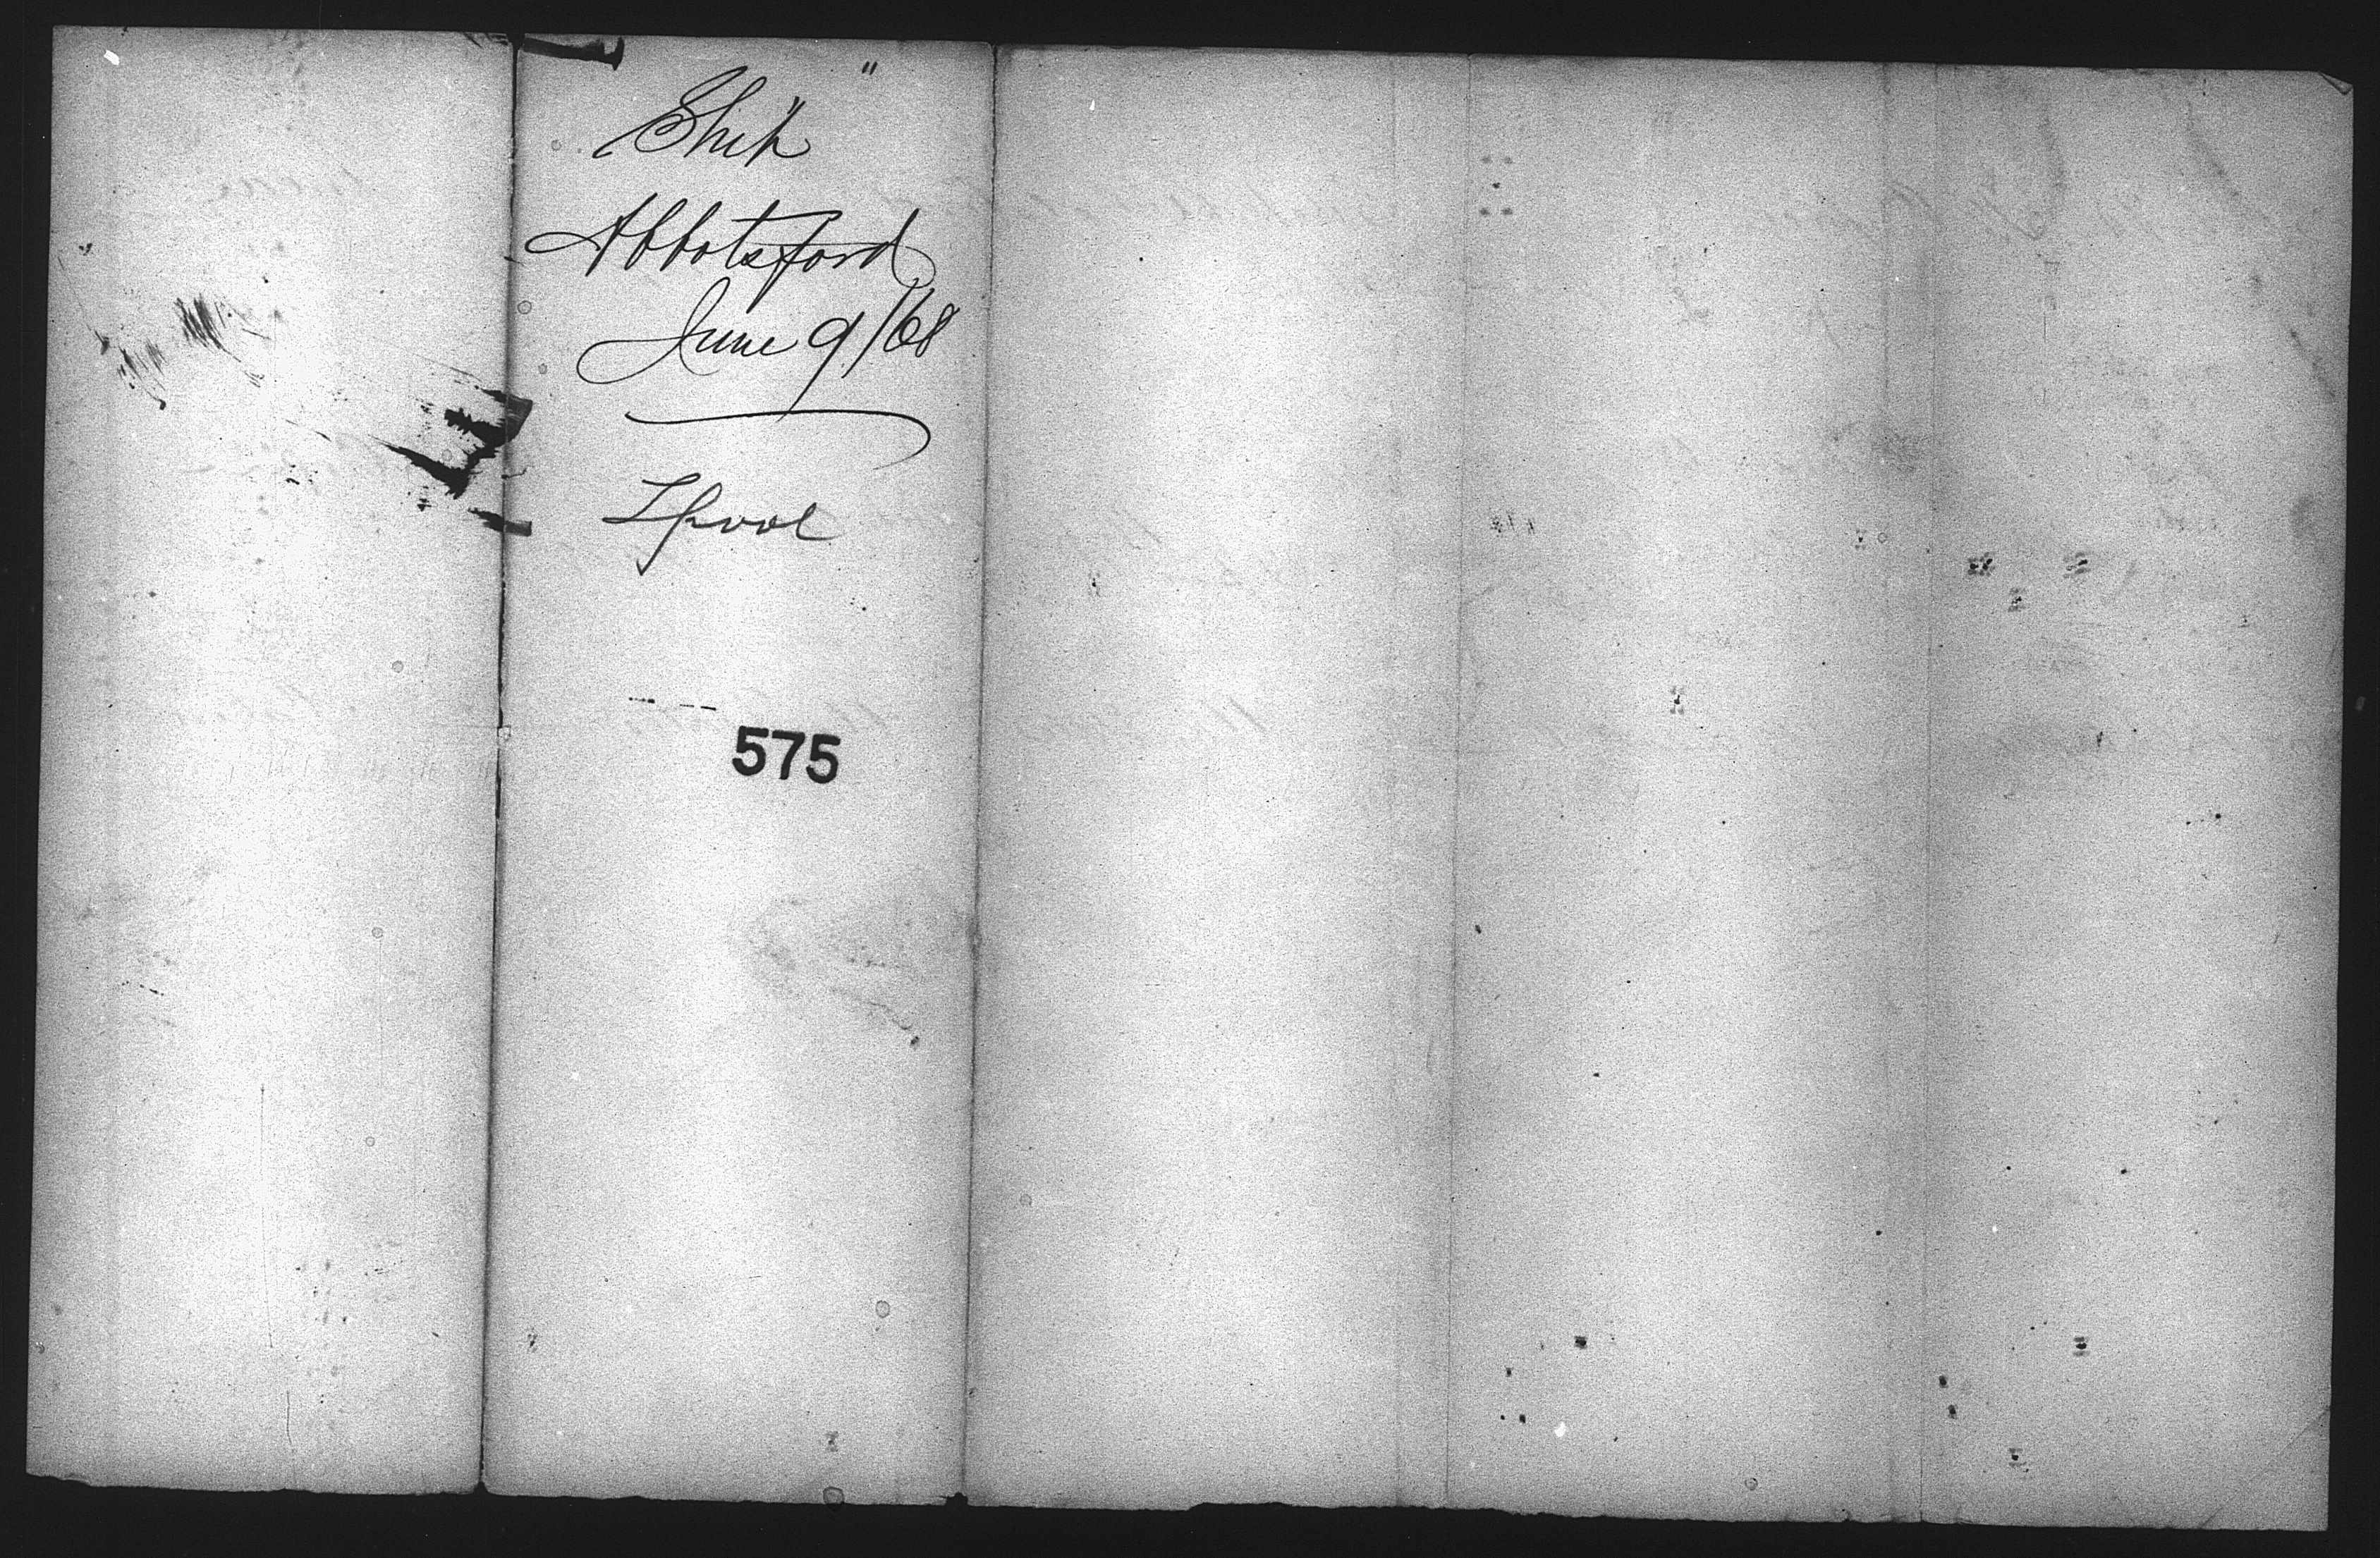 Ship "
Abbotsford
June 9/68
Lpool
575